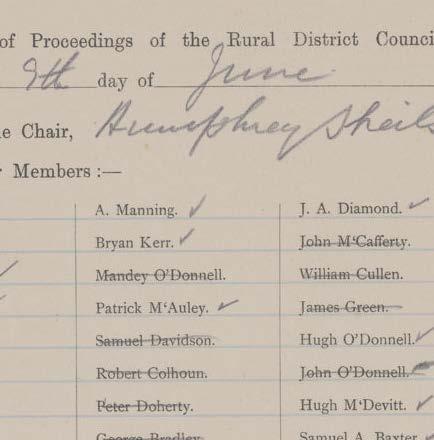 of Proceedings of the Rural District Counci
9th day of June
e Chair, Humphrey Sheils
r Members :—
A. Manning. J. A. Diamond.
Bryan Kerr. John M'Cafferty.
Mandey O'Donnell. William Cullen.
Patrick M'Auley. James Green.
Samuel Davidson. Hugh O'Donnell.
Robert Colhoun. John O'Donnell.
Peter Doherty. Hugh M'Devitt.
George Bradley. Samuel A. Baxter